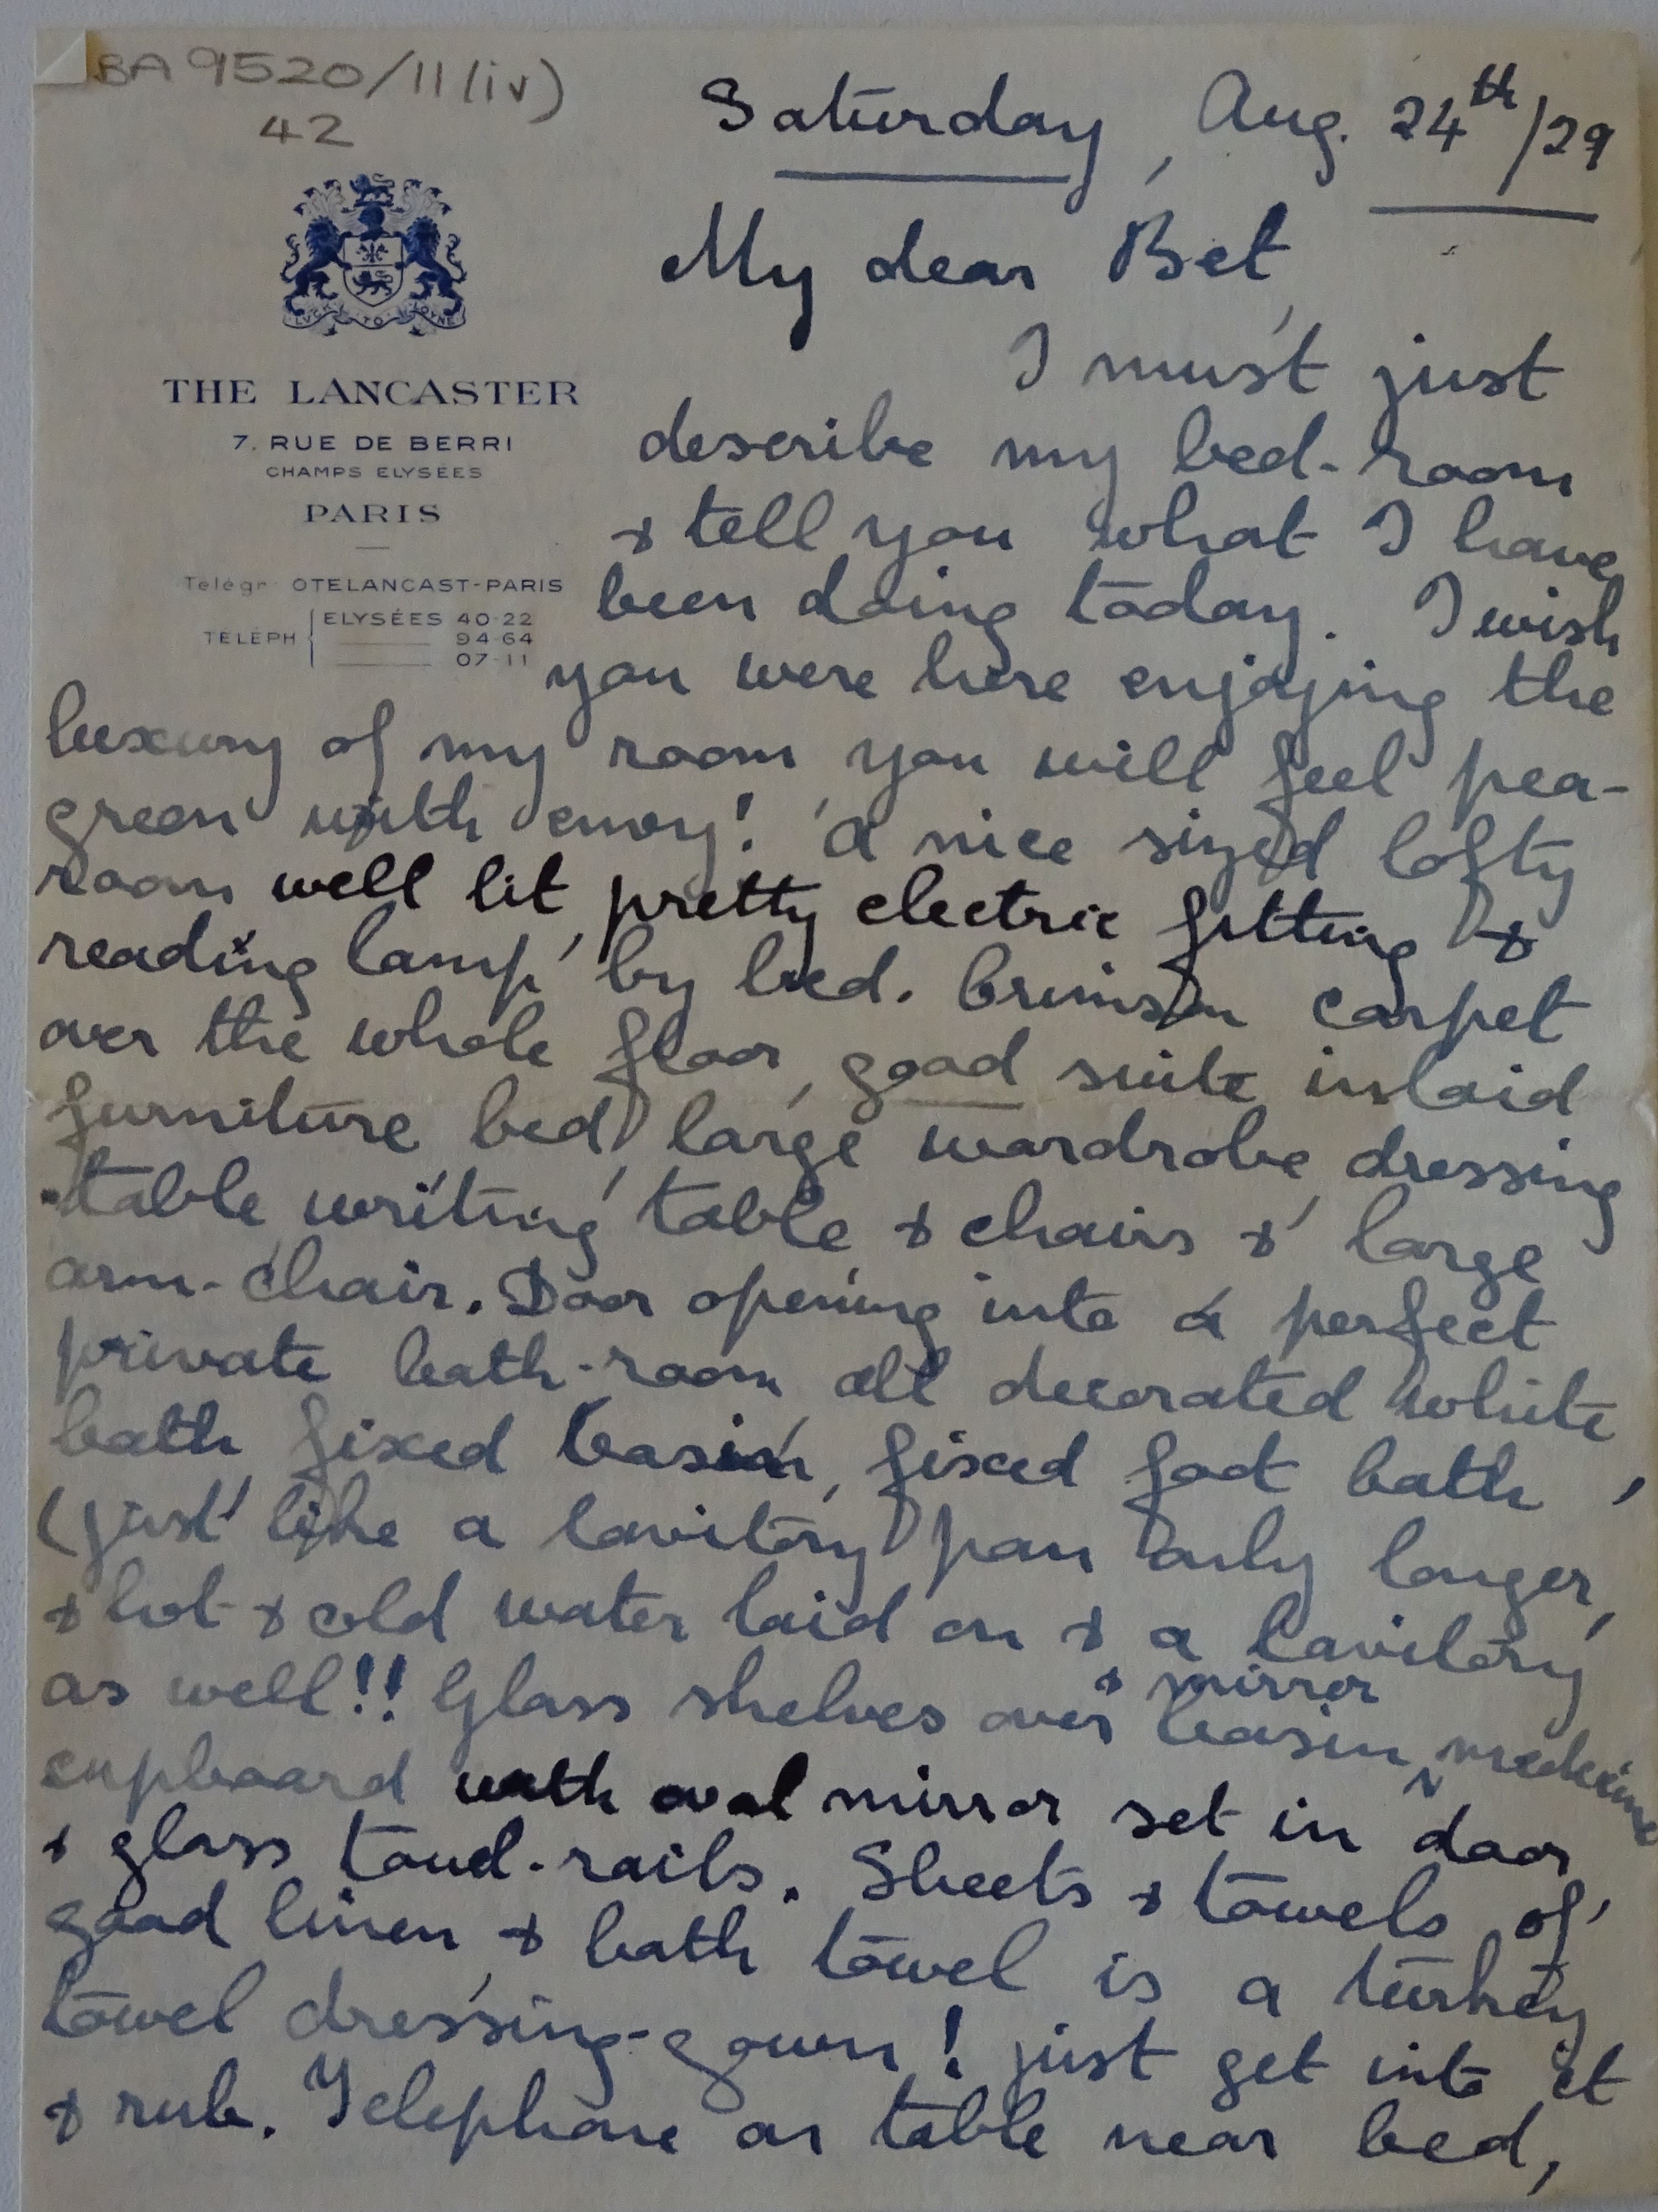 BA 9520/11(iv)
42
Saturday, Aug. 24th/29
LUCK TO LOYNE
THE LANCASTER
7, RUE DE BERRI
CHAMPS ELYSÉES
PARIS
Télégr OTELANCAST-PARIS
TÉLÉPH { ELYSÉES 40-22
94-64
07-11
My dear Bet,
I must just
describe my bed-room
& tell you what I have
been doing today. I wish
you were here enjoying the
luxury of my room you will feel pea-
green with envy! A nice sized lofty
room well lit, pretty electric fitting &
reading lamp by bed. Crimson carpet
over the whole floor, good suite inlaid
furniture bed, large wardrobe, dressing
table, writing table & chairs & large
arm-chair. Door opening into a perfect
private bath-room all decorated white,
bath fixed basin, fixed foot bath,
(just like a lavitory pan only longer,
& hot & cold water laid on & a lavitory
as well!! Glass shelves over basin & mirror medicine
cupboard with oval mirror set in door,
& glass towel-rails. Sheets & towels of
good linen, & bath towel is a turkey
towel dressing-gown! just get into it
& rub. Telephone on table near bed,